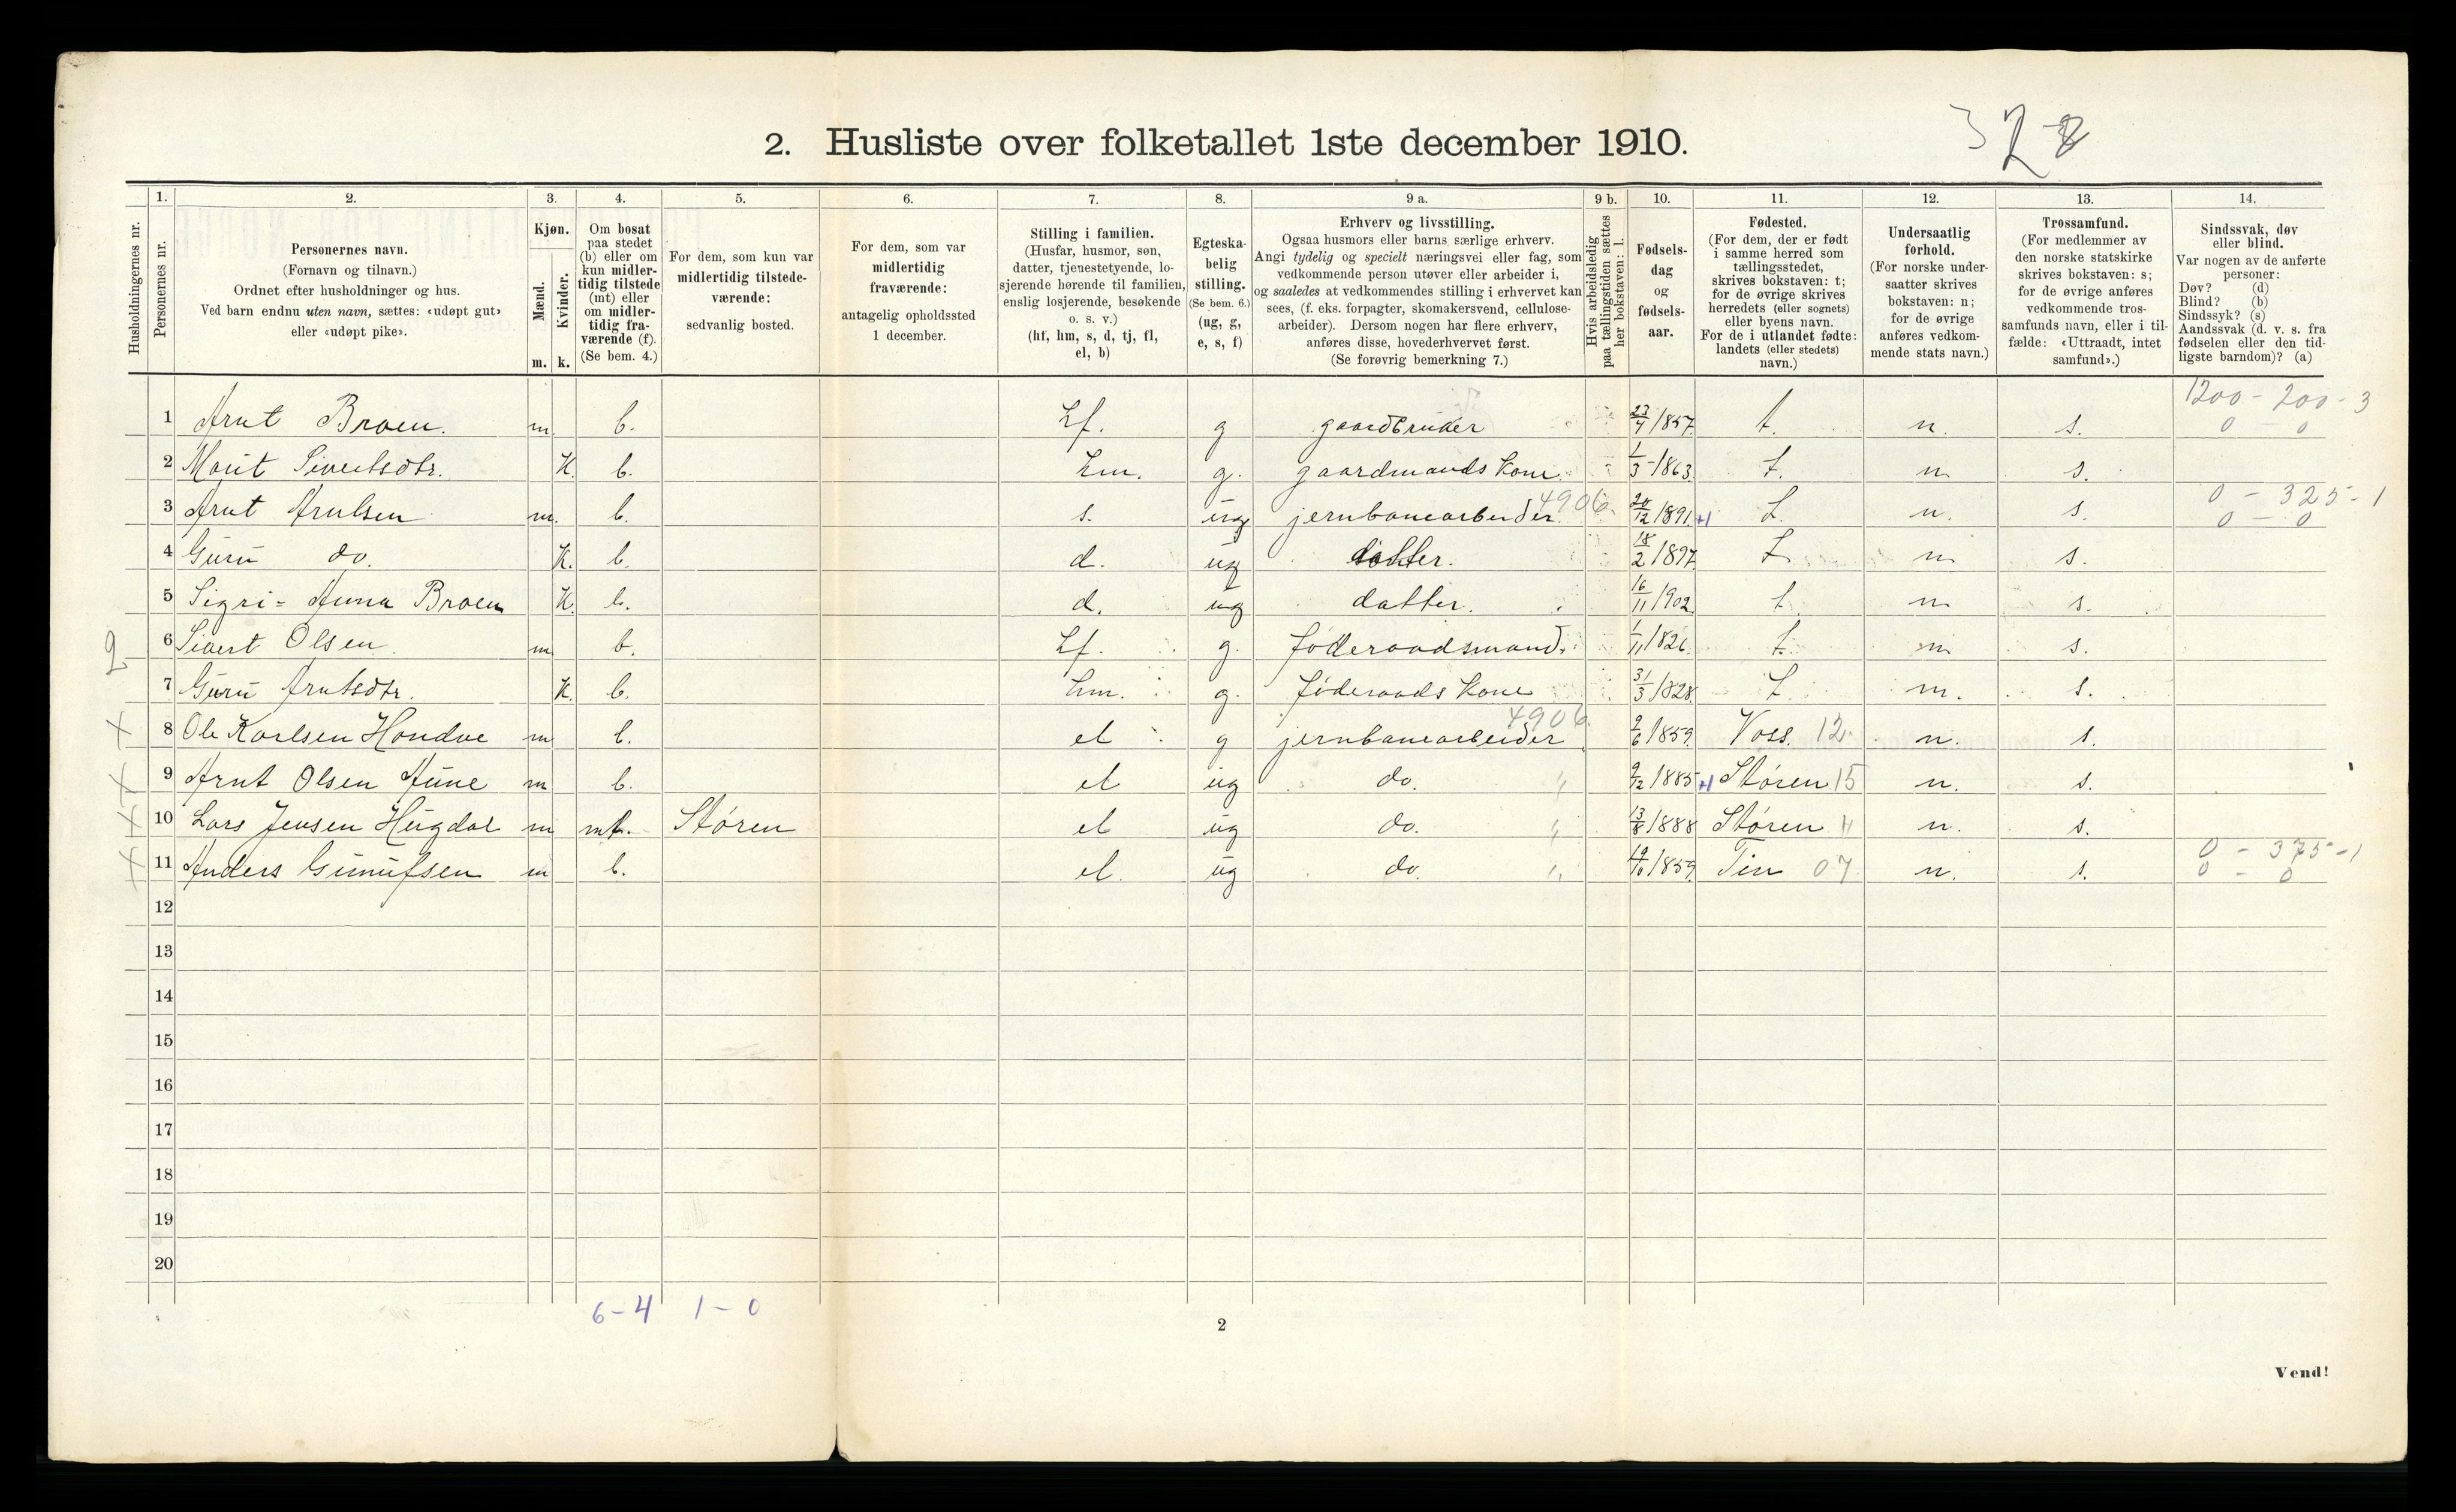 328
2. Husliste over folketallet 1ste december 1910.
Husholdningernes nr.
1.
Personernes nr.
2.
Personernes navn.
(Fornavn og tilnavn.)
Ordnet efter husholdninger og hus.
Ved barn endnu uten navn, sættes: «udøpt gut»
eller «udøpt pike».
3.
Kjøn.
Mænd.
Kvinder.
m. k.
4.
Om bosat
paa stedet
(b) eller om
kun midler-
tidig tilstede
(mt) eller
om midler-
tidig fra-
værende (f).
(Se bem. 4.)
5.
For dem, som kun var
midlertidig tilstede-
værende:
sedvanlig bosted.
6.
For dem, som var
midlertidig
fraværende:
antagelig opholdssted
1 december.
7.
Stilling i familien.
(Husfar, husmor, søn,
datter, tjenestetyende, lo-
sjerende hørende til familien,
enslig losjerende, besøkende
o. s. v.)
(hf, hm, s, d, tj, fl,
el, b)
8.
Egteska-
belig
stilling.
(Se bem. 6.)
(ug, g,
e, s, f)
9 a.
Erhverv og livsstilling.
Ogsaa husmors eller barns særlige erhverv.
Angi tydelig og specielt næringsvei eller fag, som
vedkommende person utøver eller arbeider i,
og saaledes at vedkommendes stilling i erhvervet kan
sees, (f. eks. forpagter, skomakersvend, cellulose-
arbeider). Dersom nogen har flere erhverv,
anføres disse, hovederhvervet først.
(Se forøvrig bemerkning 7.)
9 b.
Hvis arbeidsledig
paa tællingstiden sættes
her bokstaven: l.
10.
Fødsels-
dag
og
fødsels-
aar.
11.
Fødested.
(For dem, der er født
i samme herred som
tællingsstedet,
skrives bokstaven: t;
for de øvrige skrives
herredets (eller sognets)
eller byens navn.
For de i utlandet fødte:
landets (eller stedets)
navn.)
12.
Undersaatlig
forhold.
(For norske under-
saatter skrives
bokstaven: n;
for de øvrige
anføres vedkom-
mende stats navn.)
13.
Trossamfund.
(For medlemmer av
den norske statskirke
skrives bokstaven: s;
for de øvrige anføres
vedkommende tros-
samfunds navn, eller i til-
fælde: «Uttraadt, intet
samfund».)
14.
Sindssvak, døv
eller blind.
Var nogen av de anførte
personer:
Døv? (d)
Blind? (b)
Sindssyk? (s)
Aandssvak (d. v. s. fra
fødselen eller den tid-
ligste barndom)? (a)
1200 - 200 - 3
1 Arnt Broen. m. b. hf. g gaardbruker 23/4 1857 t. n. s. 0 0
2 Marit Sivertsdtr. K b. hm. g. gaardmands kone 1/3 1863 t. n s.
3 Arnt Arntsen m. b. s. ug jernbanearbeider 4906 20/12 1891 +1 t. n. s. 0 - 325 - 1
0 - 0
4 Guru do. K. b. d. ug datter. 18/2 1897 t n s.
5 Sigri= Anna Broen K. b. d. ug datter. 16/11 1902 t n s.
2
6 Sivert Olsen m b. hf. g. føderaadsmand. 1/11 1826. t. n s.
7 Guru Arntsdtr. K. b. hm. g. føderaads kone 31/3 1828 t n. s.
4906
X 8 Ole Karlsen Hondve m b. el g jernbanearbeider 2/6 1859 Voss. 12 n. s.
X 9 Arnt Olsen Aune m b. el ug do. " 9/12 1885 +1 Støren 15 n. s.
X 10 Lars Jensen Hugdal m mt. Støren el ug do. " 13/8 1888 Støren 11 n. s.
X 11 Anders Gunufsen m b. el. ug do. " 19/10 1859 Tin 07 n. s. 0 - 375 - 1
0 - 0
12
13
14
15
16
17
18
19
20
6 - 4 1 - 0
2
Vend!